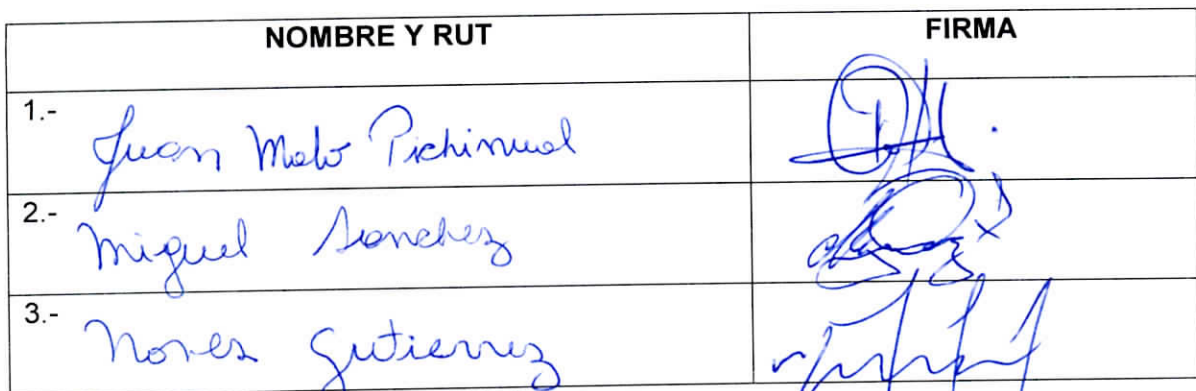 NOMBRE Y RUT FIRMA
1.- Juan Malo Pichinual
2.- Miguel Sanchez
3.- Gutierrez